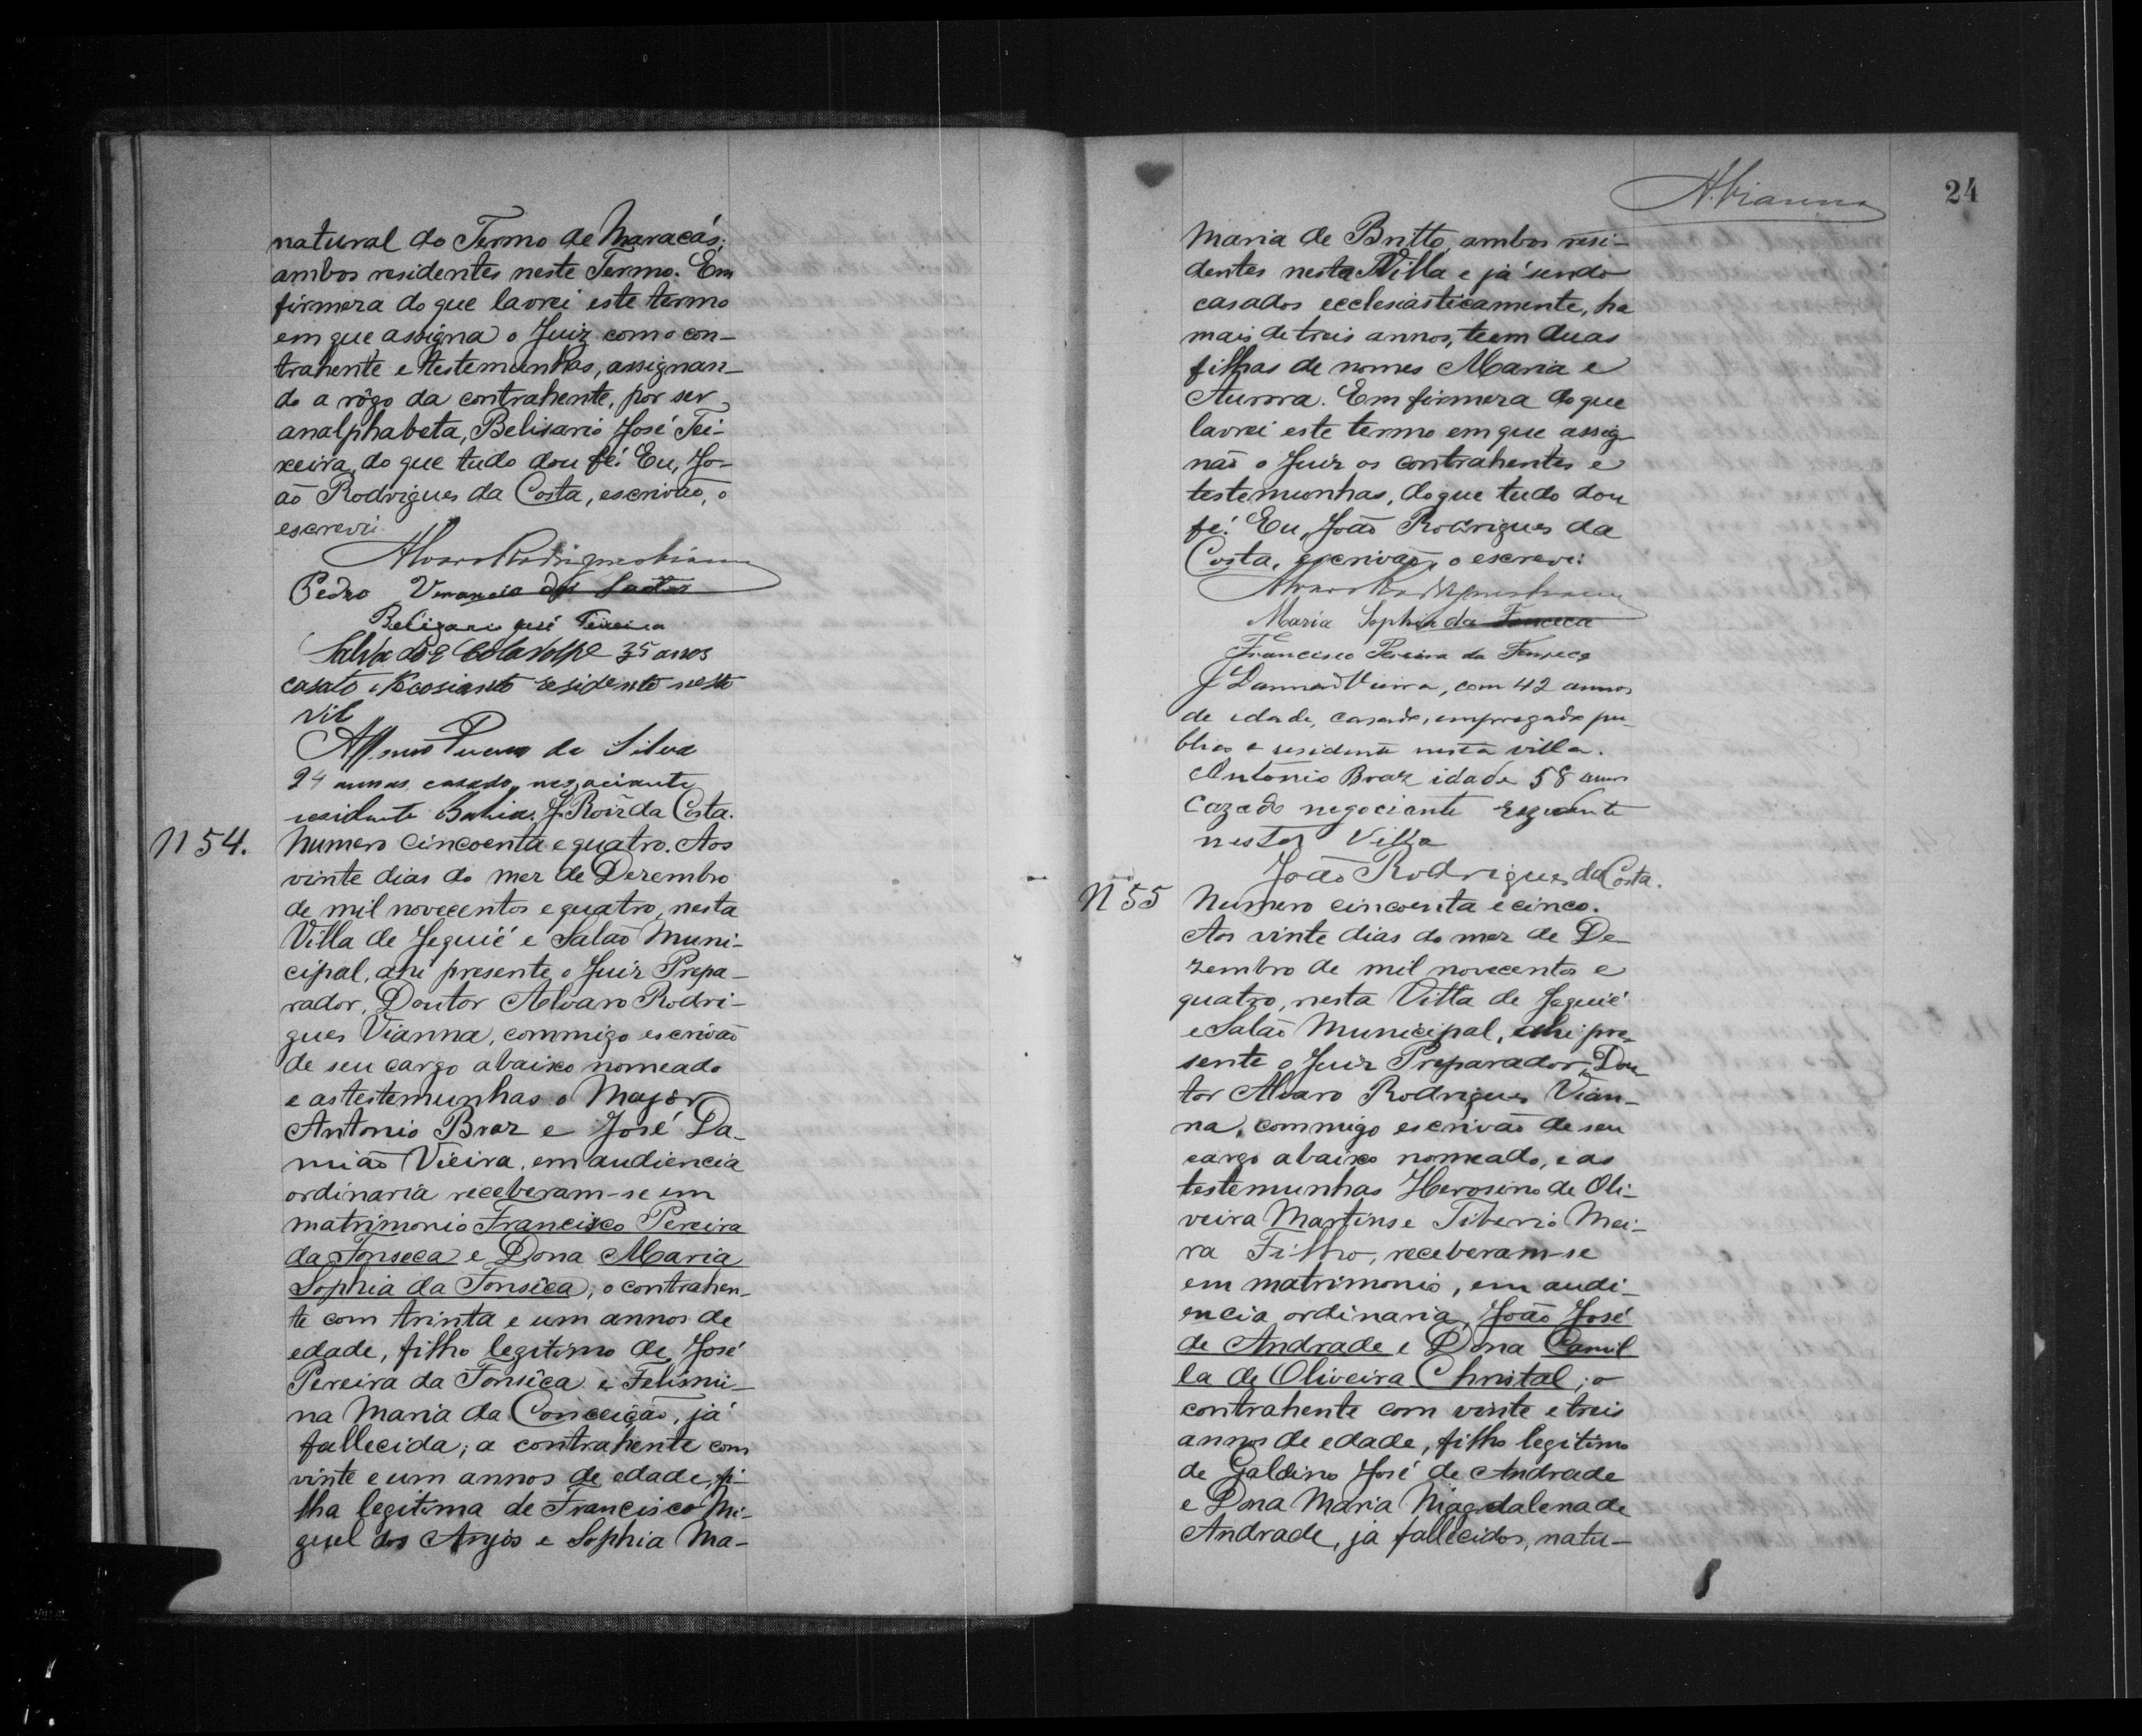 natural do Termo de Maracás;
ambos residentes neste Termo. Em
firmeza do que lavrei este termo
em que assigna o Juiz com o con-
trahente e testemunhas, assignan-
do a rôgo da contrahente, por ser
analphabeta, Belisario José Tei-
xeira, do que tudo dou fé. Eu, Jo-
ão Rodrigues da Costa, escrivão, o
escrevi
Alvaro Rodrigues Vianna
Pedro Venancio dos Santos
Belizario José Teixeira
Salvador 35 annos
casato residente nesto
vil
Affonso da Silva
24 annos casado, negociante
residente Bahia. J. Roiz da Costa.
N 54. Numero cincoenta e quatro. Aos
vinte dias do mez de Dezembro
de mil novecentos e quatro, nesta
Villa de Jequié e Salão Muni-
cipal, ahi presente o Juiz Prepa-
rador, Doutor Alvaro Rodri-
gues Vianna, commigo escrivão
de seu cargo abaixo nomeado
e as testemunhas o Major
Antonio Braz e José Da-
mião Vieira, em audiencia
ordinaria receberam-se em
matrimonio Francisco Pereira
da Fonseca e Dona Maria
Sophia da Fonsêca; o contrahen-
te com trinta e um annos de
edade, filho legitimo de José
Pereira da Fonsêca e Felismi-
na Maria da Conceição, já
fallecida; a contrahente com
vinte e um annos de edade, fi-
lha legitima de Francisco Mi-
guel dos Anjos e Sophia Ma-
A. Vianna
24
Maria de Britto, ambos resi-
dentes nesta Villa e já sendo
casados ecclesiasticamente, ha
mais de treis annos, teem duas
filhas de nomes Maria e
Aurora. Em firmeza do que
lavrei este termo em que assig-
não o Juiz os contrahentes e
testemunhas, do que tudo dou
fé. Eu, João Rodrigues da
Costa, escrivão, o escrevi
Alvaro Rodrigues Vianna
Maria Sophia da Fonceca
Francisco Pereira da Fonseca
J Damião Vieira, com 42 annos
de edade, casado, empregado pu-
blico e residente nesta villa.
Antonio Braz idade 58 annos
Cazado negociante
nesta Villa
João Rodrigues da Costa.
N 55 Numero cincoenta e cinco.
Aos vinte dias do mez de De-
zembro de mil novecentos e
quatro, nesta Villa de Jequié
e Salão Municipal, ahi pre-
sente o Juiz Preparador, Dou-
tor Alvaro Rodrigues Vian-
na, commigo escrivão de seu
cargo abaixo nomeado, e as
testemunhas Herosino de Oli-
veira Martins e Tiberio Mei-
ra Filho, receberam-se
em matrimonio, em audi-
encia ordinaria, João José
de Andrade e Dona Camil
la de Oliveira Christal; o
contrahente com vinte e treis
annos de edade, filho legitimo
de Galdino José de Andrade
e Dona Maria Magdalena de
Andrade, já fallecidos, natu-